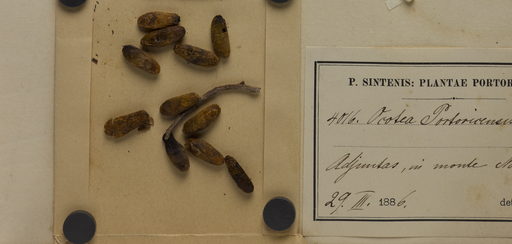 P. SINTENIS: PLANTAE PORTOR
4016. Ocotea Portoricensi
Adjuntas, in monte
29. III. 1886. de